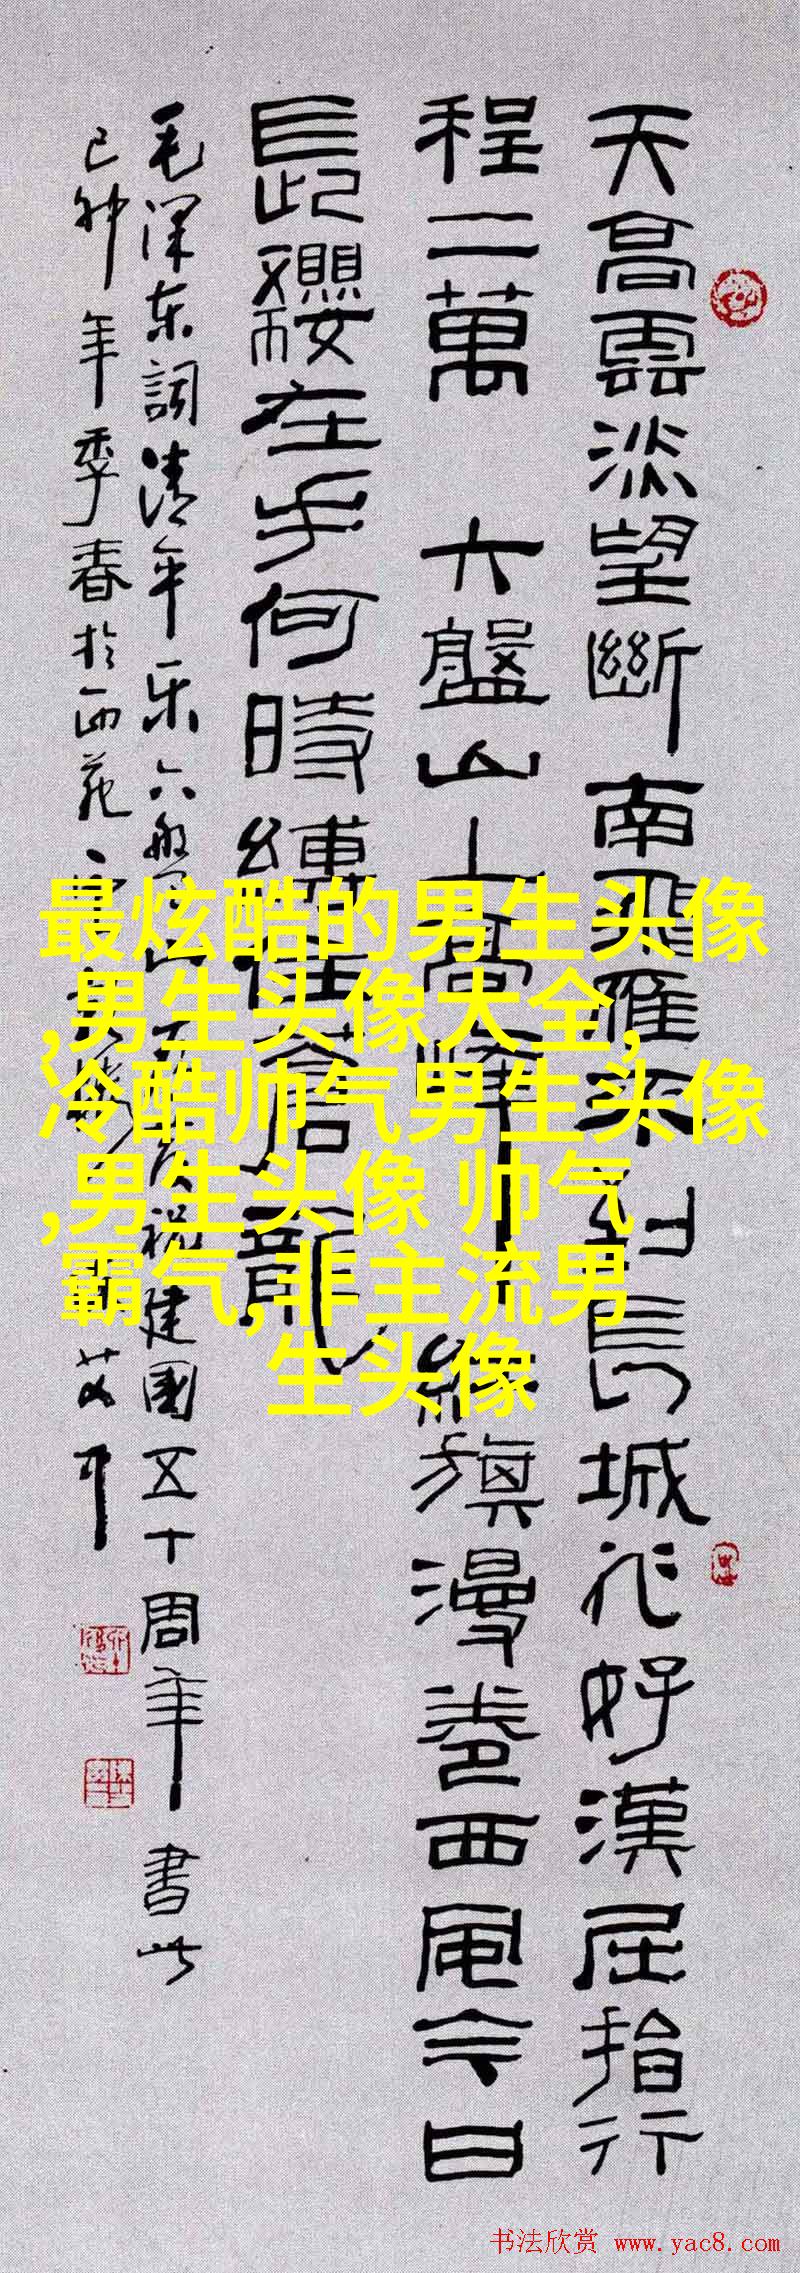 天高雲淡望斷南飛雁不到長城非好漢屈指行
程二萬 六盤山上高峰 旗漫卷西風今日
長纓在手何時縛住蒼龍
毛澤东詞清平乐六盤山 祝建國五十周年書此
己卯年季春於西苑
最炫酷的男生头像
,男生头像大全,
冷酷帅气男生头像
,男生头像 帅气
霸气,非主流男
生头像
书法欣赏 www.yac8.com